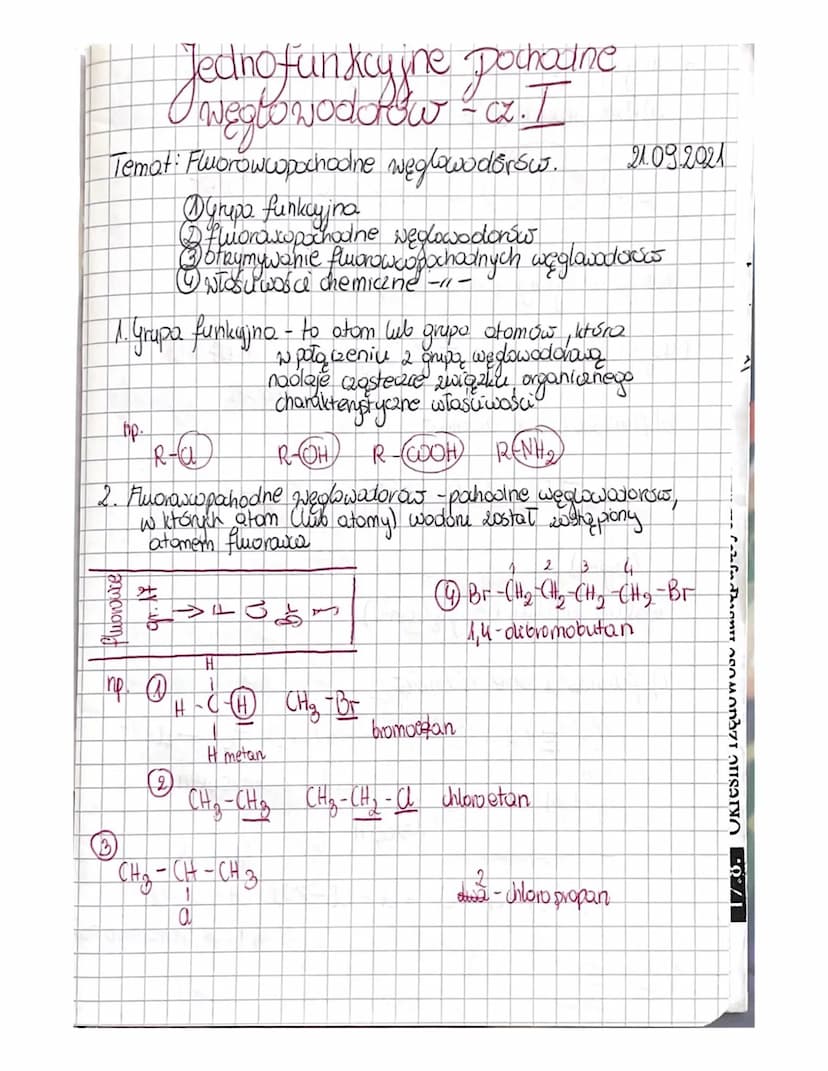 Jednofunkcyjne pochodne
węglowodorów - cz. I
Temat: Fluorowcopochodne węglowodorów. 21.09.2021
① Grupa funkcyjna
② fluorowcopochodne węglowodorów
③ otrzymywanie fluorowcopochodnych węglowodorów
④ właściwości chemiczne -||-
1. Grupa funkcyjna - to atom lub grupa atomów, która
w połączeniu z grupą węglowodorową
nadaje cząsteczce związku organicznego
charakterystyczne właściwości
np.
R-Cl R-OH R-COOH R-NH₂
2. Fluorowcopochodne węglowodorów - pochodne węglowodorów,
w których atom (lub atomy) wodoru został zastąpiony
atomem fluorowca
fluorowce
gr. 17 → F Cl Br I
1 2 3 4
④ Br-CH₂-CH₂-CH₂-CH₂-Br
1,4-dibromobutan
H
np. ① H-C-H CH₃-Br
bromoetan
H metan
② CH₃-CH₃ CH₃-CH₂-Cl chloroetan
③
CH₃-CH-CH₃
Cl
2-chloropropan
17.8. Określ